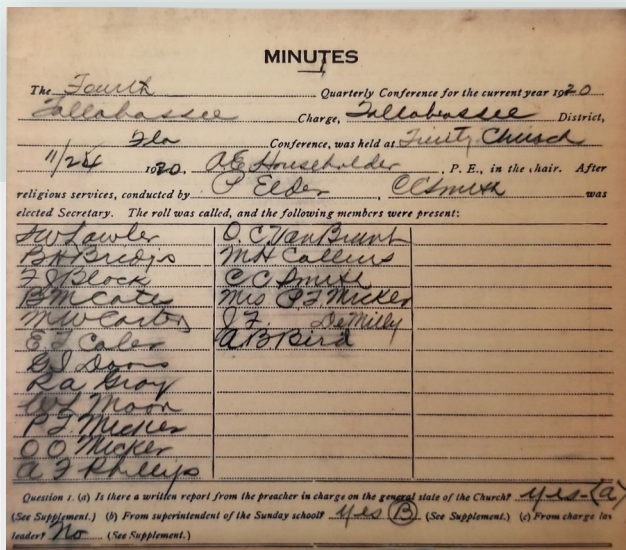 MINUTES
The Fourth Quarterly Conference for the current year 1920
Tallahassee Charge, Tallahassee District,
Fla Conference, was held at Trinity Church
11/24 1920. A E Householder, P. E., in the chair. After
religious services, conducted by P Elder, C C Smith was
elected Secretary. The roll was called, and the following members were present:
Lawler
B H Bridges
Block
B M Cates
M W Carter
E F
R A Gray
Moon
P T Mickler
O O Mickler
A F Phillips
O. C. Van Brunt
M H Collins
C C Smith
Mrs P T Mickler
J. F. DeMilly
A B Bird
Question 1. (a) Is there a written report from the preacher in charge on the general state of the Church? yes-(a)
(See Supplement.) (b) From superintendent of the Sunday school? yes (B) (See Supplement.) (c) From charge lay
leader? No (See Supplement.)